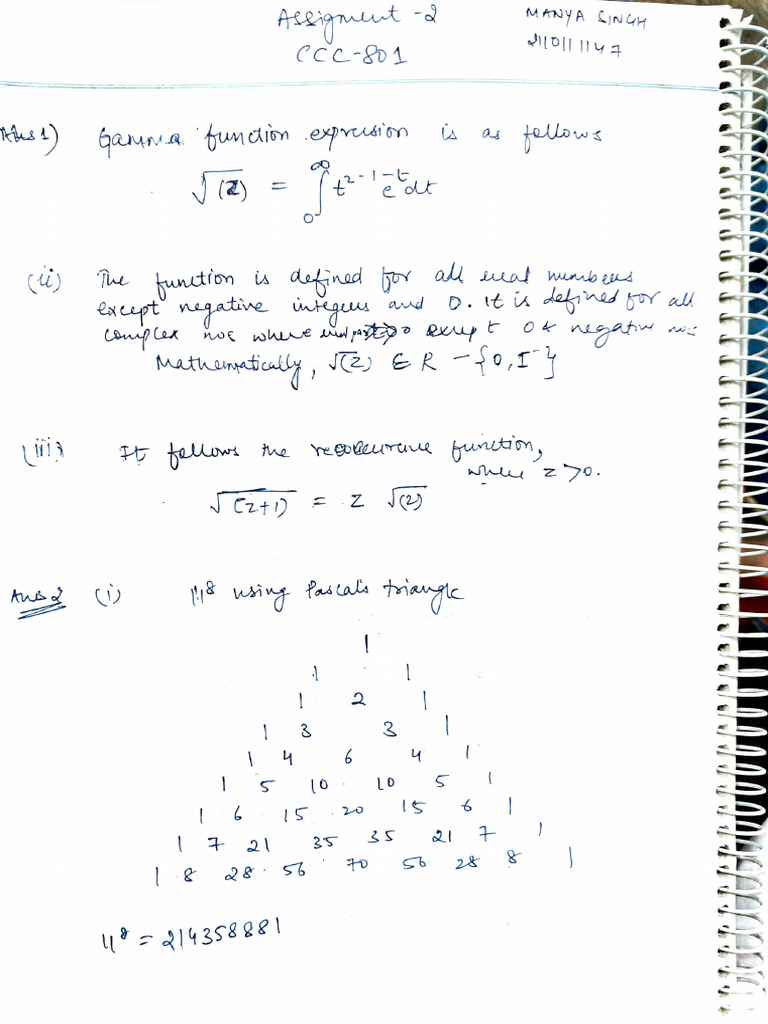 Assigment -2
MANYA SINGH
CCC-801
2110111147
Ans1) Gamma function expression is as follows
√(z) = ∫₀^∞ t^z-1 e^-t dt
(ii) The function is defined for all real numbers
except negative integers and 0. It is defined for all
complex nos where real part>0 except 0 & negative nos
Mathematically, √(z) ∈ R - {0, I⁻}
(iii) It follows the function,
where z >0.
√(z+1) = z √(z)
Ans 2 (i) 11⁸ using Pascal's triangle
1
1 1
1 2 1
1 3 3 1
1 4 6 4 1
1 5 10 10 5 1
1 6 15 20 15 6 1
1 7 21 35 35 21 7 1
1 8 28 56 70 56 28 8 1
11⁸ = 214358881